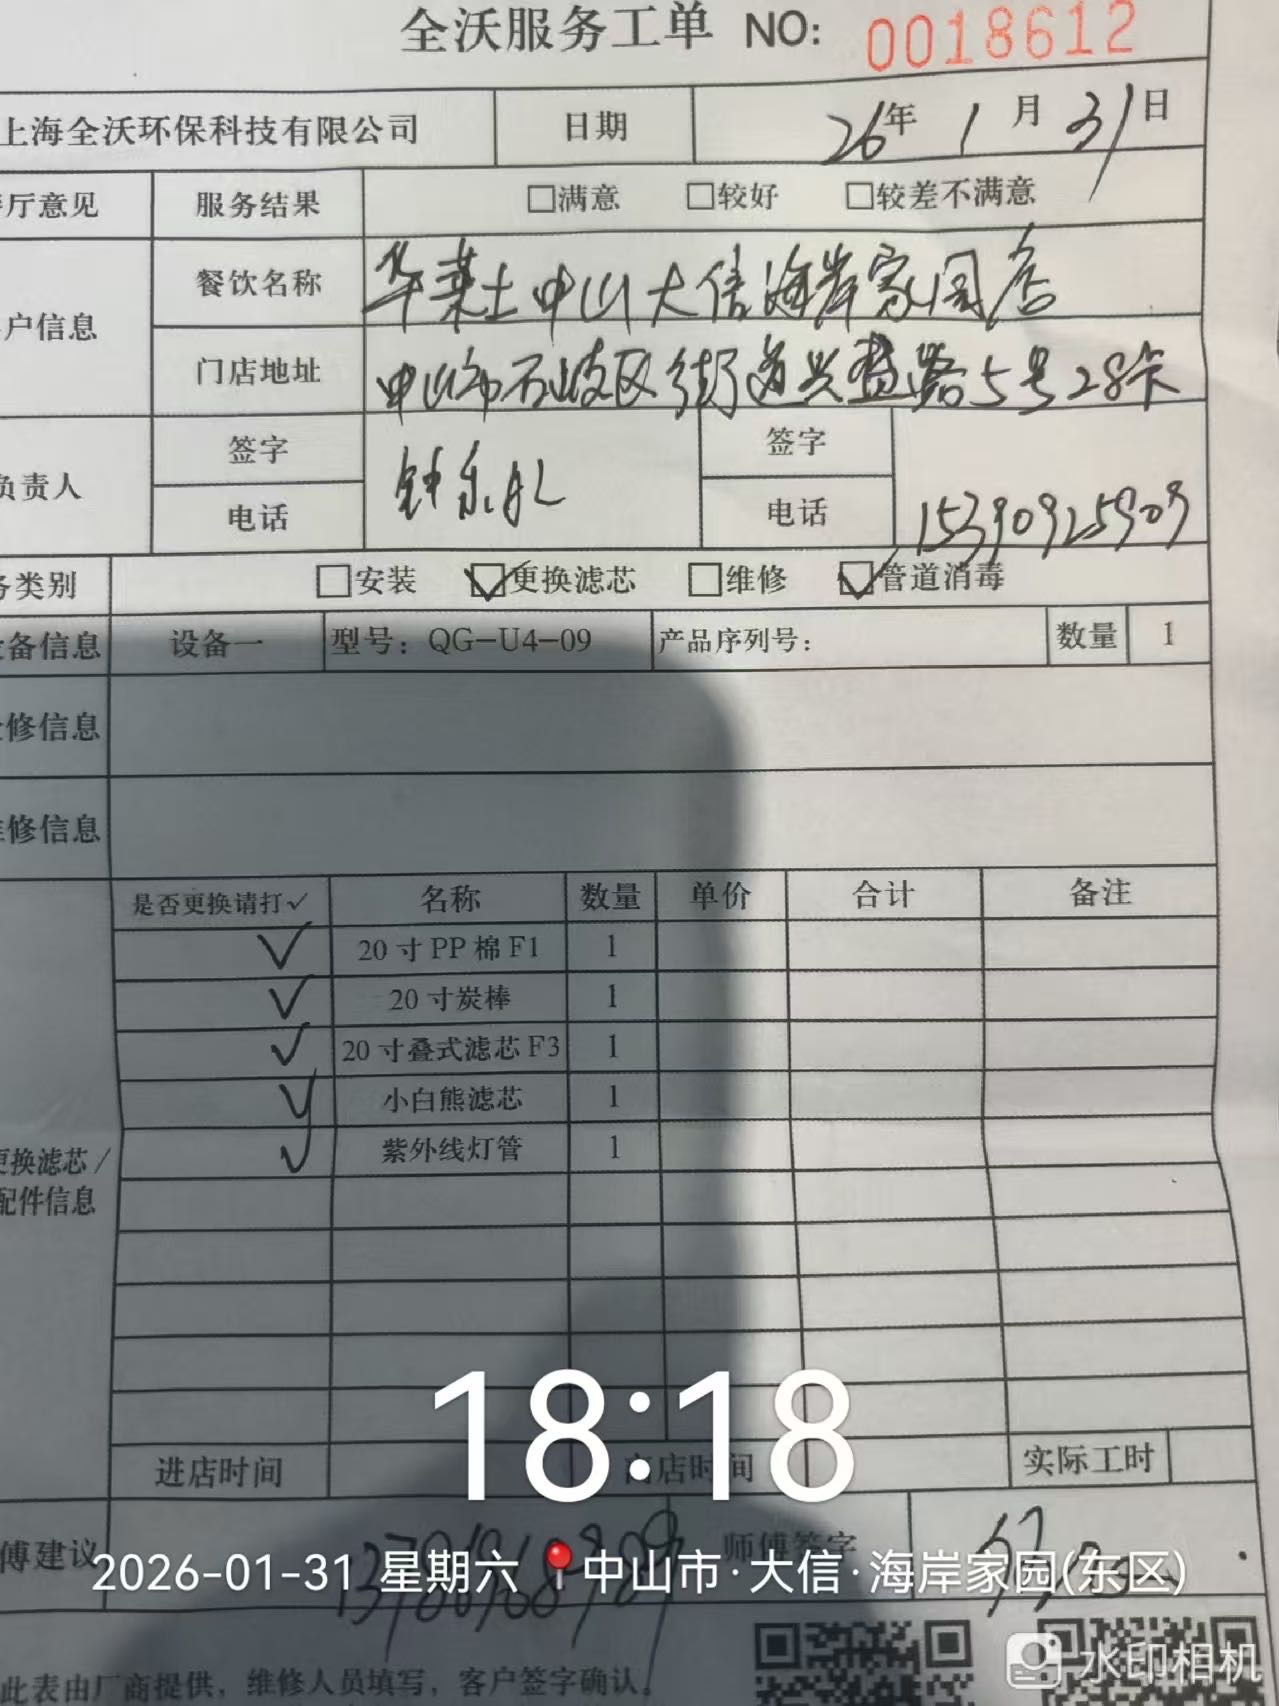 全沃服务工单 NO: 0018612
上海全沃环保科技有限公司 日期 26年 1月 31日
厅意见 服务结果 □满意 □较好 □较差不满意
户信息 餐饮名称 华莱士中山大信海岸家园店
门店地址 中山市石岐区街道兴盛路5号28卡
负责人 签字 签字
电话 电话 15390925909
务类别 □安装 ☑更换滤芯 □维修 ☑管道消毒
备信息 设备一 型号：QG-U4-09 产品序列号： 数量 1
修信息
修信息
是否更换请打✓ 名称 数量 单价 合计 备注
✓ 20寸PP棉F1 1
✓ 20寸炭棒 1
✓ 20寸叠式滤芯F3 1
✓ 小白熊滤芯 1
✓ 紫外线灯管 1
更换滤芯/
配件信息
进店时间 离店时间 实际工时
18:18
傅建议 师傅签字
2026-01-31 星期六 中山市·大信·海岸家园(东区)
此表由厂商提供，维修人员填写，客户签字确认。
水印相机